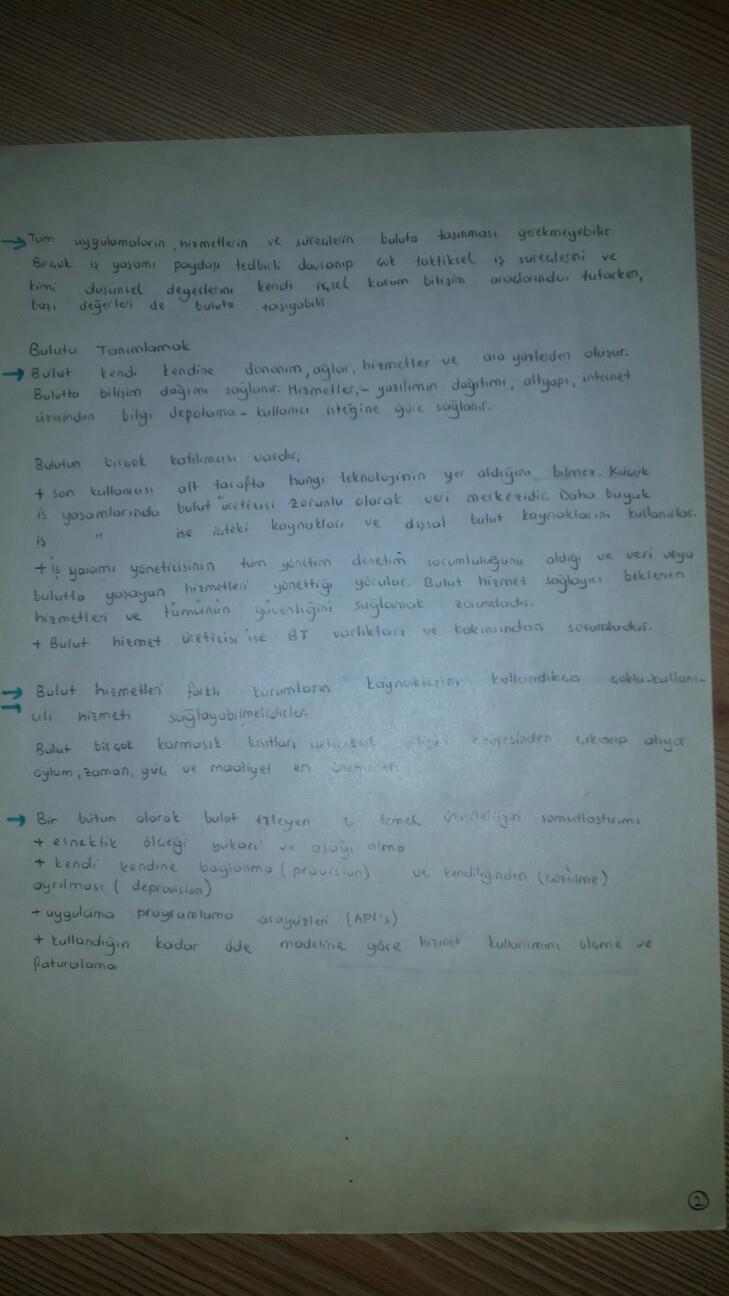 → Tüm uygulamaların, hizmetlerin ve süreçlerin buluta taşınması gerekmeyebilir.
Birçok iş yaşamı paydaşı tedbirli davranıp çok taktiksel iş süreçlerini ve
kimi düşünsel değerlerini kendi içsel kurum bilişim araçlarında tutarken,
bazı değerleri de buluta taşıyabilir.
Bulutu Tanımlamak
→ Bulut kendi kendine donanım, ağlar, hizmetler ve ara yüzlerden oluşur.
Bulutta bilişim dağımı sağlanır. Hizmetler,- yazılımın dağıtımı, altyapı, internet
üzerinden bilgi depolama - kullanıcı isteğine göre sağlanır.
Bulutun birçok katılımcısı vardır,
+ son kullanıcısı alt tarafta hangi teknolojinin yer aldığını bilmez. Küçük
iş yaşamlarında bulut üreticisi zorunlu olarak veri merkezidir. Daha büyük
iş " ise içteki kaynakları ve dışsal bulut kaynaklarını kullanırlar.
+ iş yaşamı yöneticisinin tüm yönetim denetim sorumluluğunu aldığı ve veri veya
bulutta yaşayan hizmetleri yönettiği görülür. Bulut hizmet sağlayıcı beklenen
hizmetleri ve tümünün güvenliğini sağlamak zorundadır.
+ Bulut hizmet üreticisi ise BT varlıkları ve bakımından sorumludur.
→ Bulut hizmetleri farklı kurumların kaynaklarını kullandıkça çoklu-kullanı-
→ cılı hizmeti sağlayabilmelidirler.
Bulut birçok karmaşık kısıtları çevresinden çıkarıp atıyor
oylum, zaman, güç ve maaliyet en
→ Bir bütün olarak bulut izleyen temel somutlaştırımı
+ esneklik ölçeği yukarı ve aşağı alma
+ kendi kendine bağlanma (provision) ve kendiliğinden (çözülme)
ayrılması (deprovision)
+ uygulama programlama arayüzleri (API's)
+ kullandığın kadar öde modeline göre hizmet kullanımını ölçme ve
faturalama
2